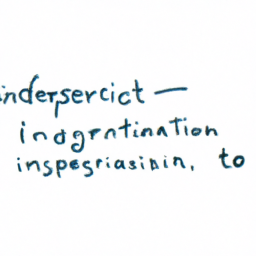 indersercict —
indgrntinaTion
inspesriasinin, to